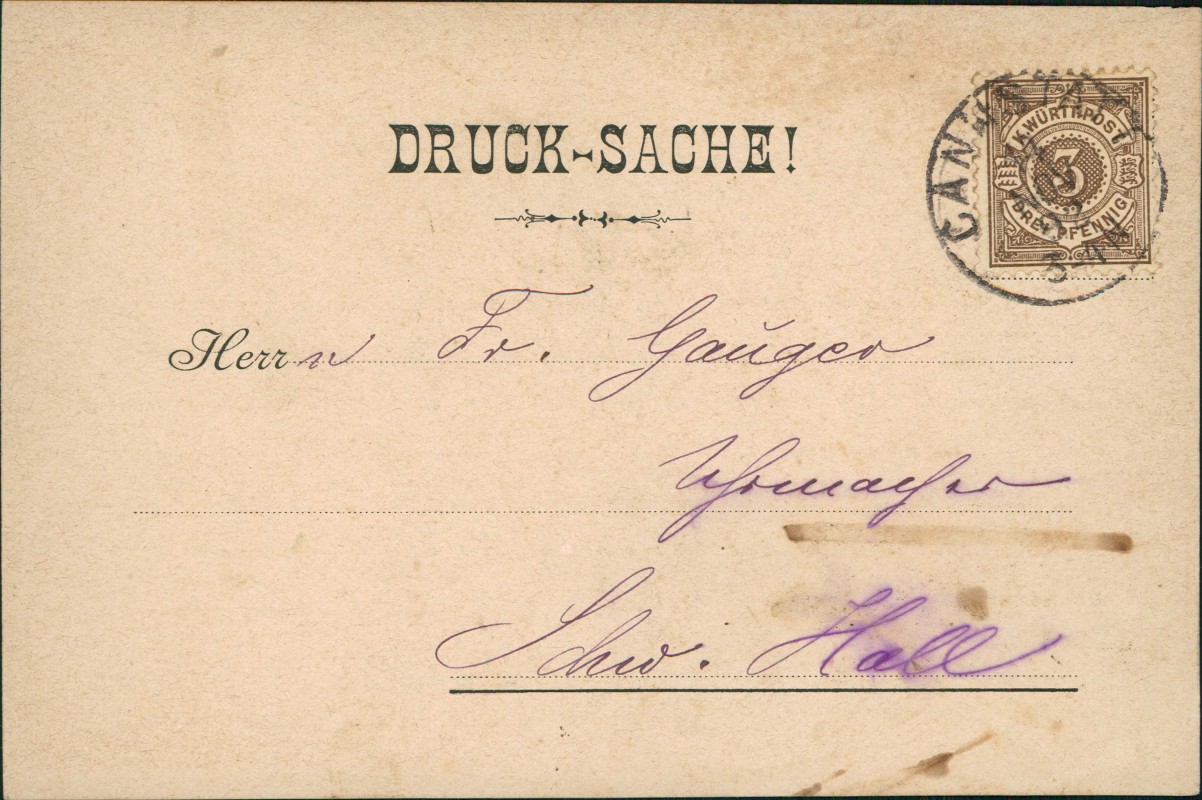 DRUCK-SACHE!
CANNSTATT
K.WÜRTT.POST
3
DREI PFENNIG
Herrn Fr. Gauger
Uhrmacher
Schw. Hall